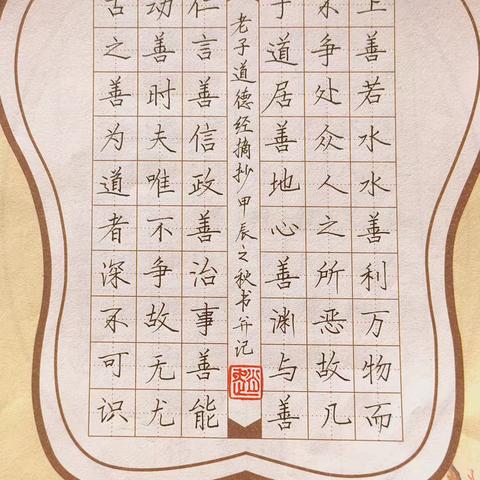 上善若水水善利万物而
不争处众人之所恶故凡
于道居善地心善渊与善
老子道德经摘抄甲辰之秋书并记
仁言善信政善治事善能
动善时夫唯不争故无尤
古之善为道者深不可识